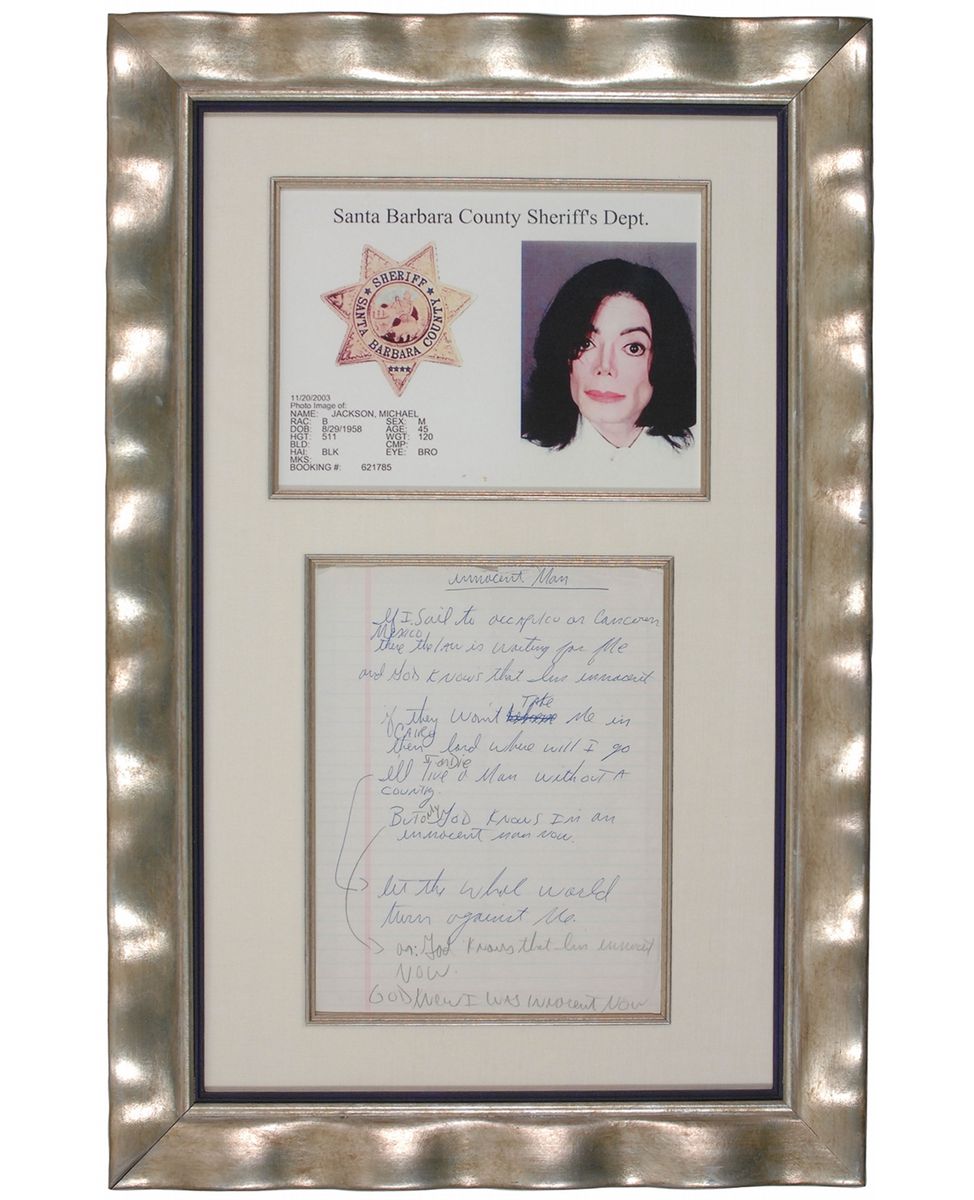 Santa Barbara County Sheriff's Dept.
SHERIFF
SANTA BARBARA COUNTY
11/20/2003
Photo Image of:
NAME: JACKSON, MICHAEL
RAC: B SEX: M
DOB: 8/29/1958 AGE: 45
HGT: 511 WGT: 120
BLD: CMP:
HAI: BLK EYE: BRO
MKS:
BOOKING #: 621785
innocent Man
If I Sail to accapulco or Cancoon
Mexico
there the law is waiting for Me
and GOD knows that Im innocent
TAke
if they Won't Me in
CAIRO
then lord where will I go
I'll live a Man without A
country.
But GOD knows I'm an
innocent man now.
let the whol world
turn against Me.
or: God knows that Im innocent
NOW.
GOD KNew I WAS INNocent NOW